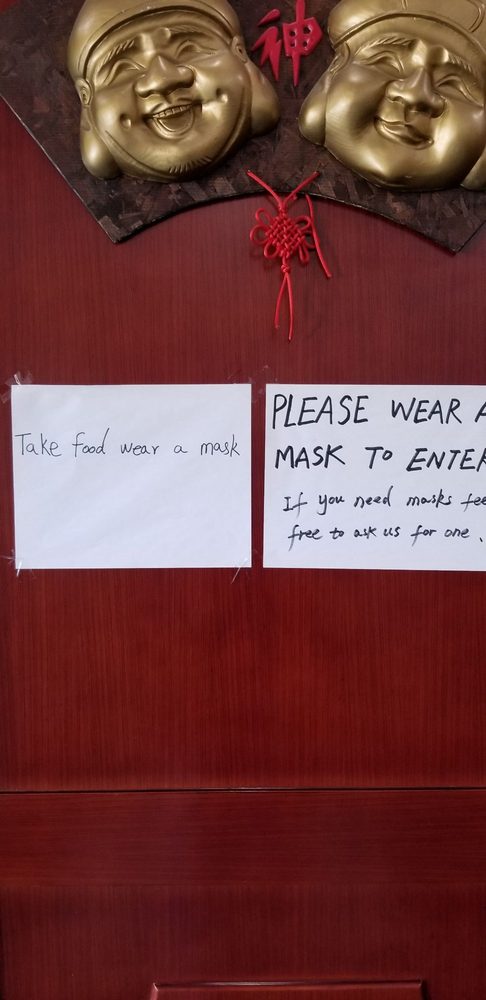 神
Take food wear a mask
PLEASE WEAR A
MASK TO ENTER
If you need masks fee
free to ask us for one.